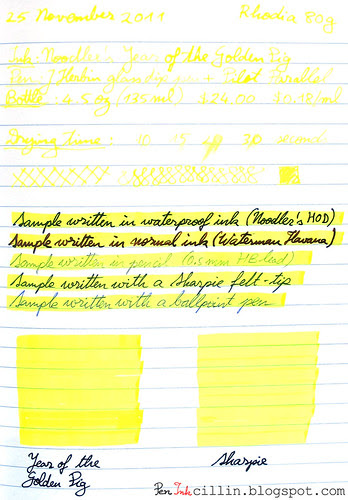 25 November 2011 Rhodia 80g
Ink: Noodler's Year of the Golden Pig
Pen: J Herbin glass dip pen + Pilot Parallel
Bottle: 4.5 oz (135ml) $24.00 $0.18/ml
Drying Time: 10 15 20 seconds
Sample written in waterproof ink (Noodler's HOD)
Sample written in normal ink (Waterman Havana)
Sample written in pencil (0.5mm HB lead)
Sample written with a Sharpie felt-tip
Sample written with a ballpoint pen
Year of the Sharpie
Golden Pig
Pen Ink cillin.blogspot.com